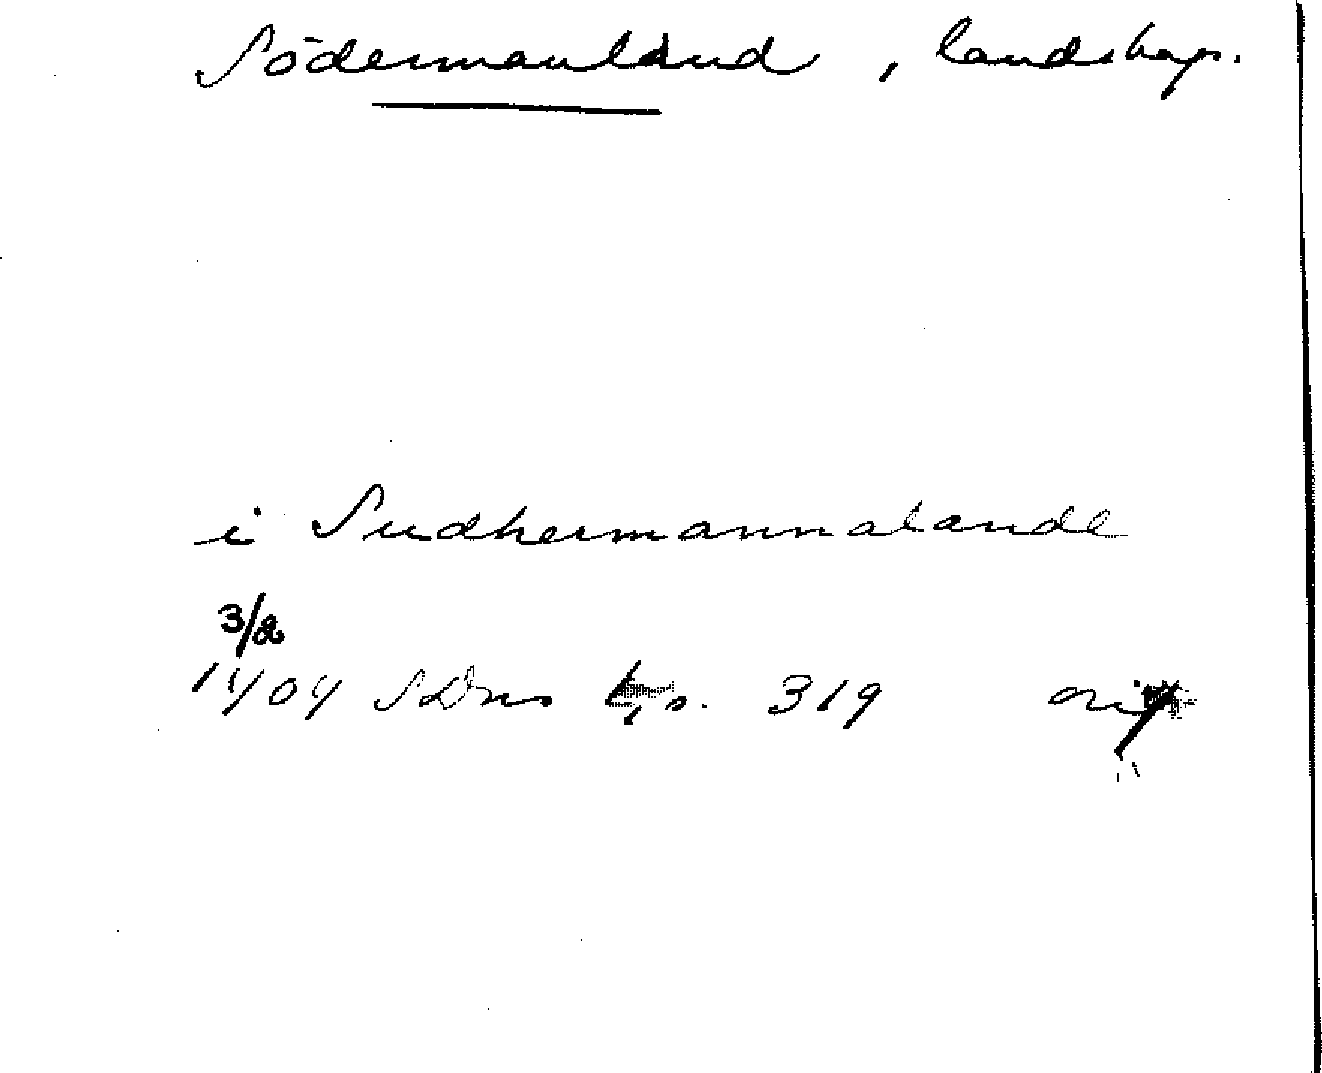 Södermanland, landskap.
i Sudhermannalande
3/2
1404 SDns 1, s. 319 orig